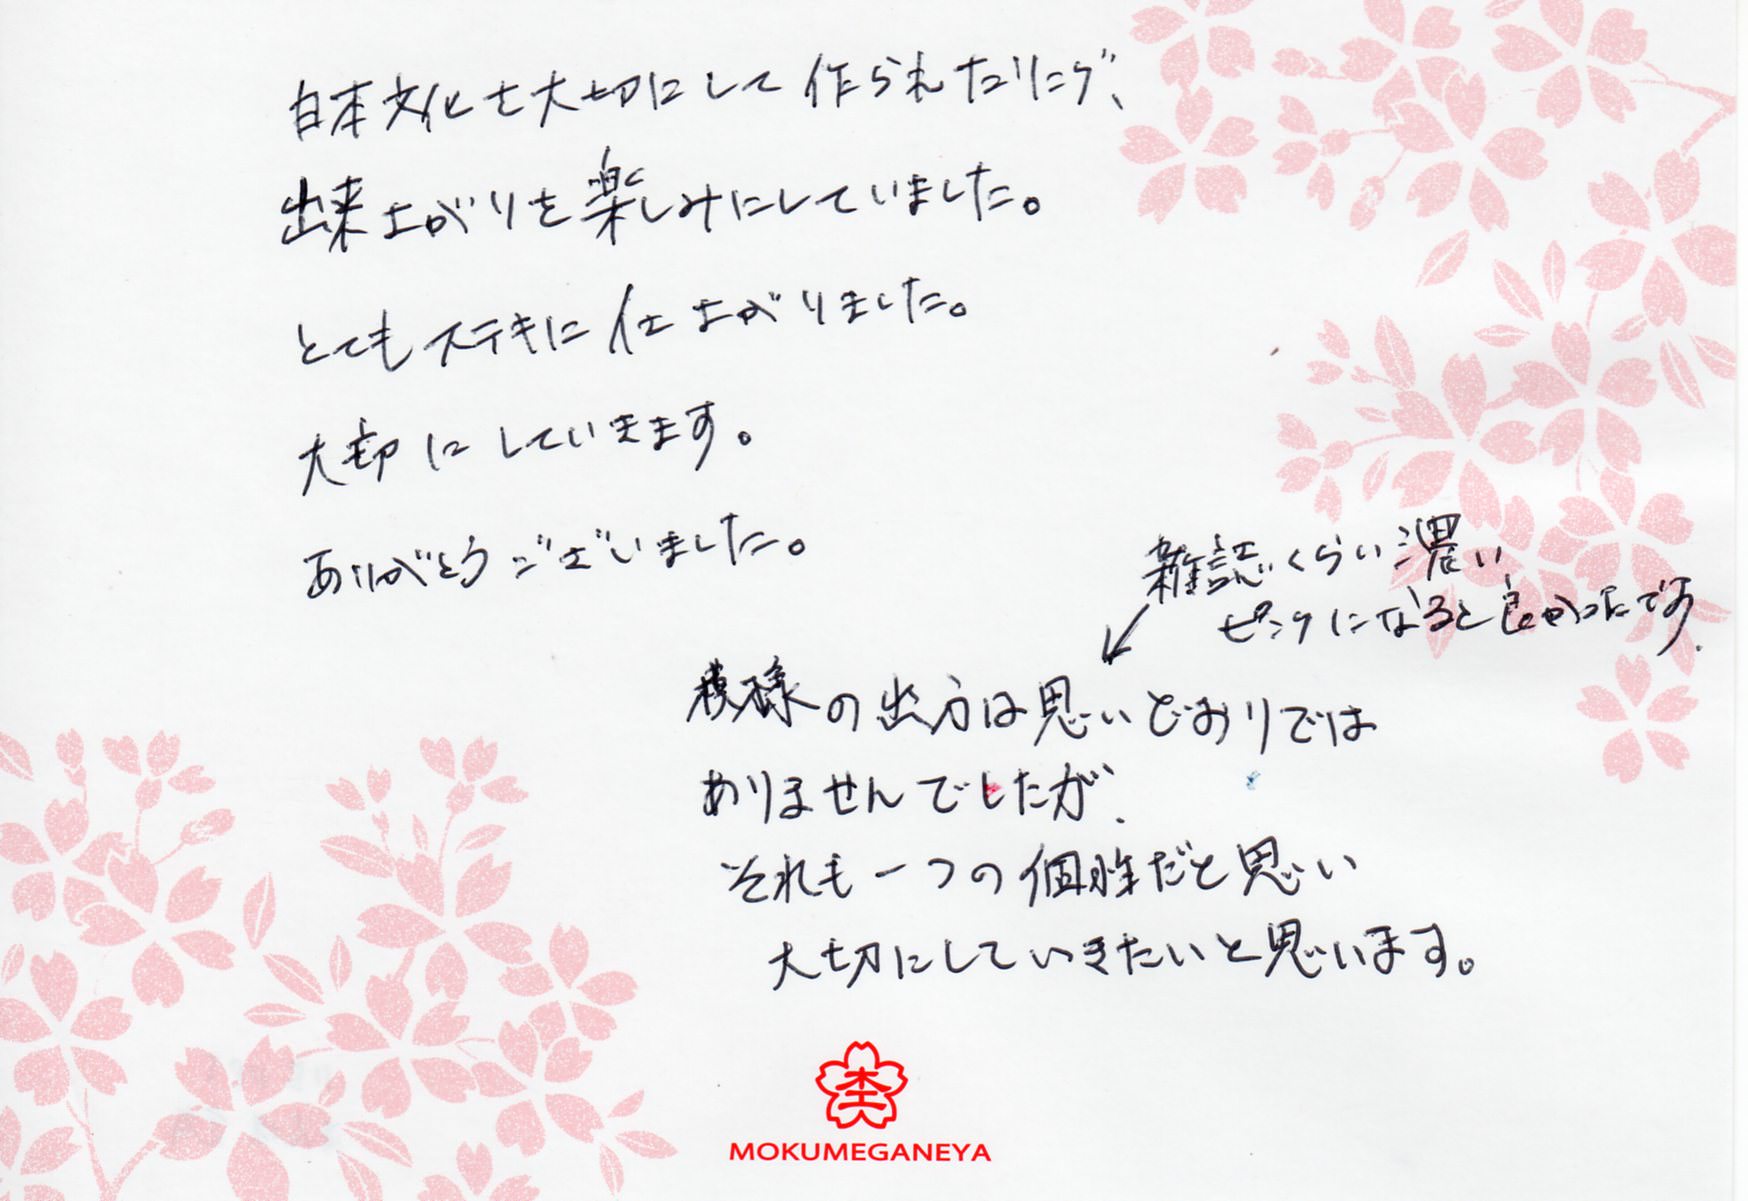 日本文化を大切にして作られたリング、
出来上がりを楽しみにしていました。
とてもステキに仕上がりました。
大切にしていきます。
ありがとうございました。
雑誌くらい濃い
ピンクになると良かったです.
模様の出方は思いどおりでは
ありませんでしたが、
それも一つの個性だと思い
大切にしていきたいと思います。
MOKUMEGANEYA